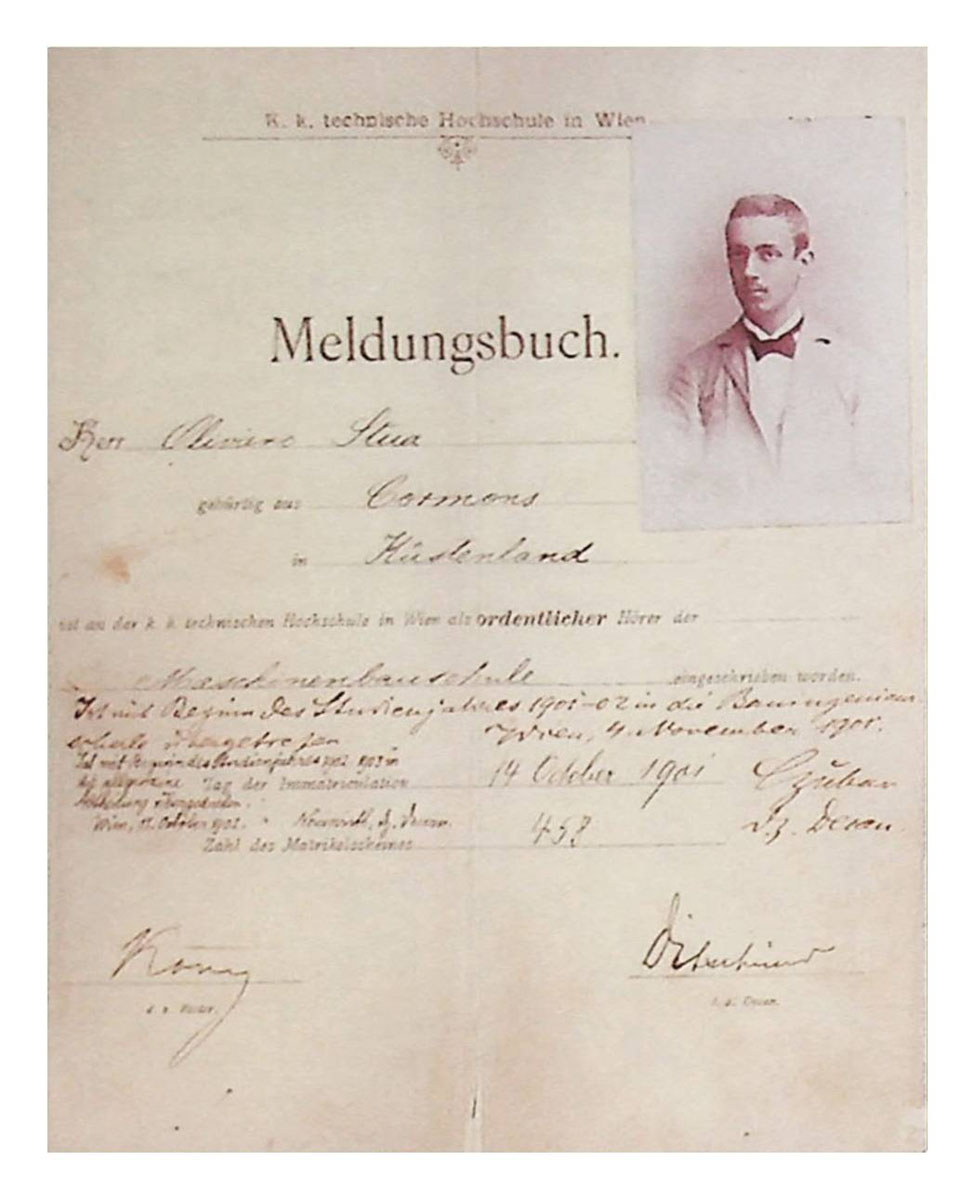 K. k. technische Hochschule in Wien
Meldungsbuch.
Herr Oliviero Stua
gebürtig aus Cormons
in Küstenland
ist an der k. k. technischen Hochschule in Wien als ordentlicher Hörer der
Maschinenbauschule eingeschrieben worden.
Ist mit Beginn des Studienjahres 1901-02 in die Bauingenieur
schule übergetreten Wien, 4. November 1901.
Ist mit Beginn des Studienjahres 1902 1903 in
die allgemeine Tag der Immatriculation 14 October 1901 Czuber
Abtheilung übergetreten.
Wien, 11. October 1902. dz. Decan.
Zahl des Matrikelscheines 457 dz. Decan.
König
d. z. Rector. d. z. Decan.